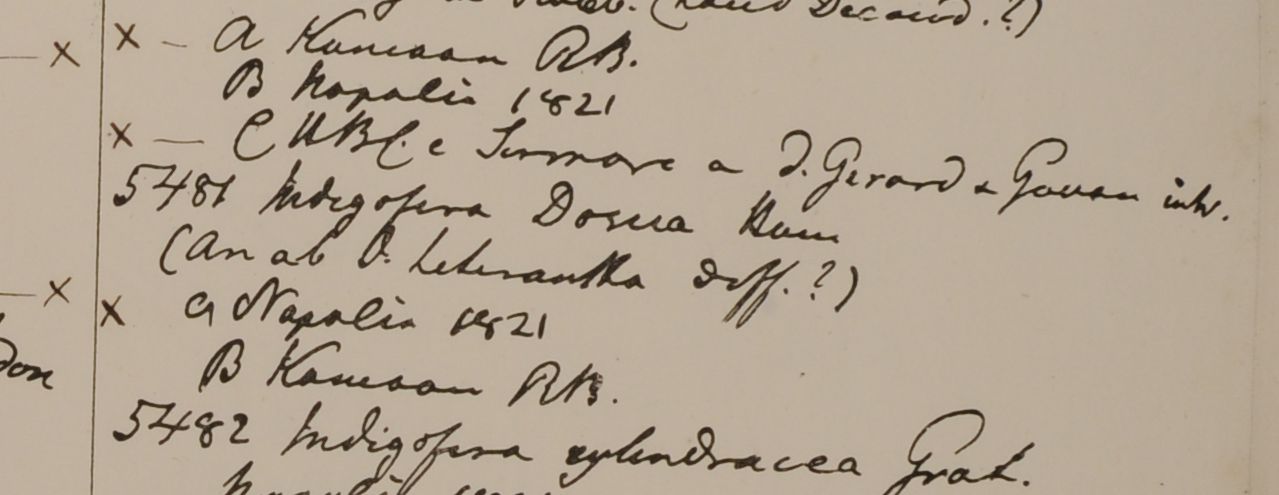 (haud Decaisd.?)
× — A Kamaon RB.
B Napalia 1821
× — C HBC. e Sirmore a D. Gerard & Govan intr.
5481 Indigofera Dosua Ham
(An ab I. heterantha diff.?)
— × × a Napalia 1821
don
B Kamaon RB.
5482 Indigofera cylindracea Grah.
Napalia